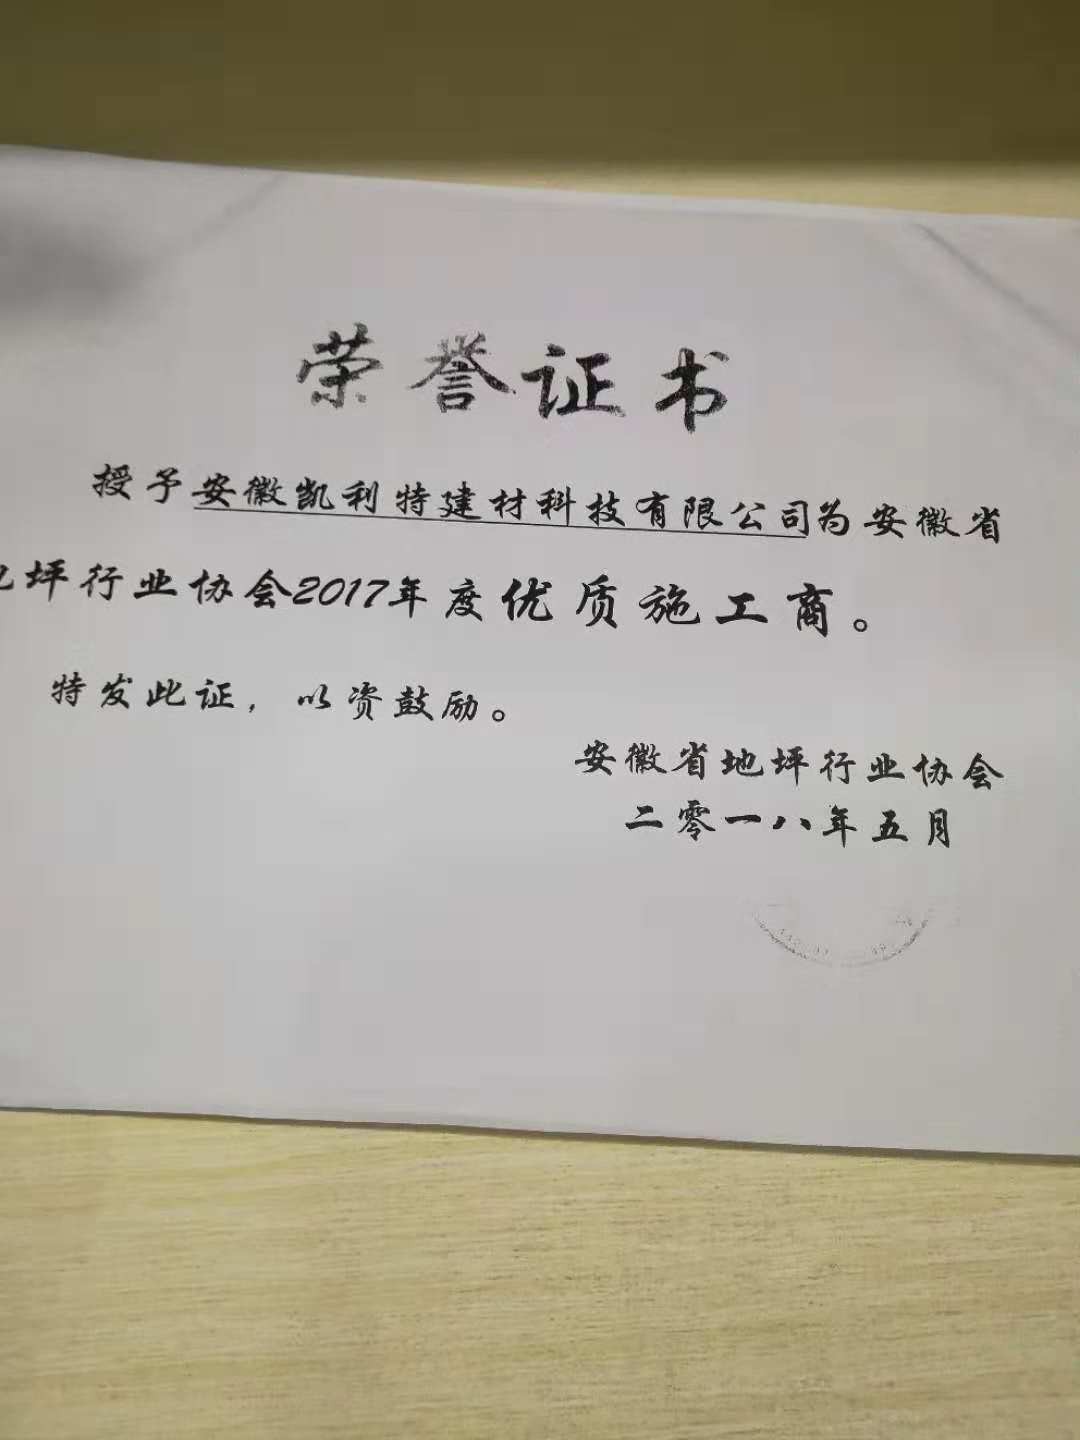 荣誉证书
授予安徽凯利特建材科技有限公司为安徽省
坪行业协会2017年度优质施工商。
特发此证，以资鼓励。
安徽省地坪行业协会
二零一八年五月